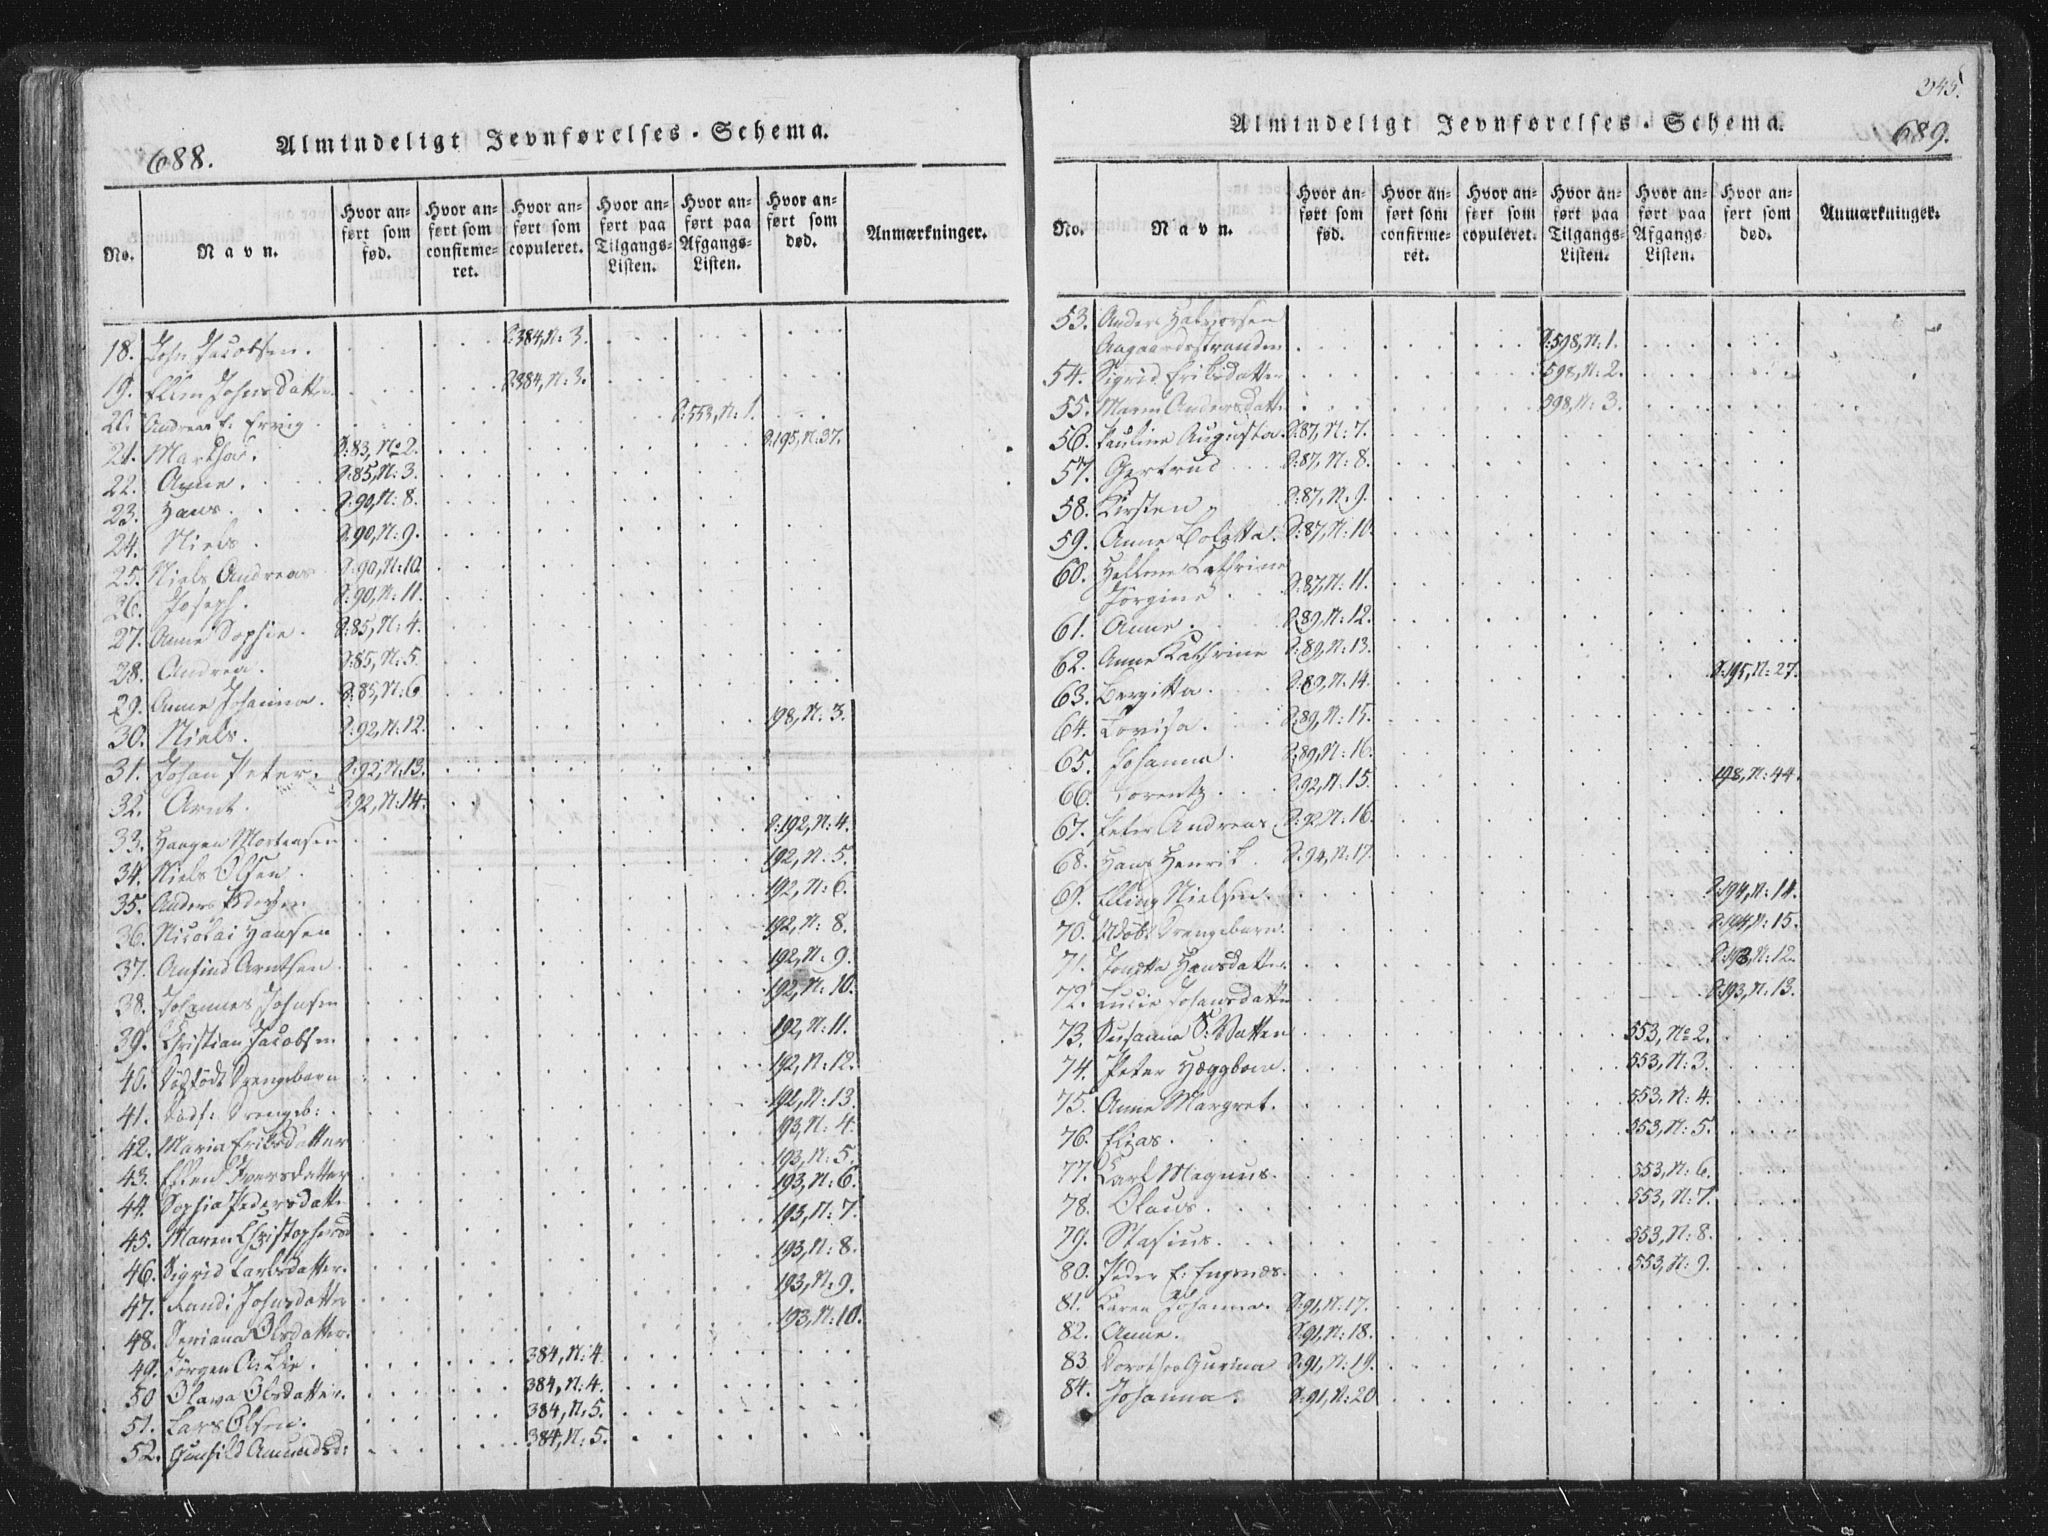 688.
Almindeligt Jevnførelses-Schema.
No. Navn. Hvor anført som fød. Hvor anført som confirmeret. Hvor anført som copuleret. Hvor anført paa Tilgangs-Listen. Hvor anført paa Afgangs-Listen. Hvor anført som død. Anmærkninger.
18. John Jacobsen. P:384, N: 3.
19. Ellen Johnsdatter P:384, N: 3.
20. Andreas E: Ervig P:553, N: 1.
21. Martha. P:83, No 2. P:195, N: 37.
22. Anne. P:85, N: 3.
23. Hans. P:90, N: 8.
24. Niels. P:90, N: 9.
25. Niels Andreas P:90, N: 10.
26. Joseph. P:90, N: 11.
27. Anne Sophie. P:85, N: 4.
28. Andrea. P:85, N: 5.
29. Anne Johanna. P:85, N: 6
30. Niels. P:92, N: 12. 198, N: 3.
31. Johan Peter. P:92, N. 13.
32. Arnt. P:92, N: 14.
33. Haagen Mortensen P:192, N: 4.
34. Niels Olsen. 192, N: 5.
35. Anders 192, N: 6.
36. Nicolai Hansen 192, N: 8.
37. Anfind Arntsen. 192, N: 9.
38. Johannes Johnsen 192, N: 10.
39. Christian Jacobsen 192, N: 11.
40. Dødfødt Drengebarn 192, N: 12.
41. Dødf: Drengeb: 192, N: 13.
42. Maria Eriksdatter 193, N: 4.
43. Ellen Iversdatter 193, N: 5.
44. Sophia Pedersdatt. 193, N: 6.
45. Maren Christophersd 193, N: 7.
46. Sigrid Larsdatter. 193, N: 8.
47. Randi Johnsdatter 193, N: 9.
48. Seriana Olsdatter. 193, N: 10.
49. Jørgen A: Lie. 384, N: 4.
50 Olava Olsdatter. 384, N: 4.
51. Lars Olsen. 384, N: 5.
52. Gunhild Amundsd: 384, N: 5.
345.
689.
Almindeligt Jevnførelses-Schema.
No. Navn. Hvor anført som fød. Hvor anført som confirmeret. Hvor anført som copuleret. Hvor anført paa Tilgangs-Listen. Hvor anført paa Afgangs-Listen. Hvor anført som død. Anmærkninger.
53. Anders Halvorsen
Aagaardsstranden P:598, N: 1.
54. Sigrid Eriksdatter 598, N: 2.
55. Maren Andersdatter 598, N: 3.
56. Pauline Augusta. P:87, N: 7.
57. Gertrud P:87, N: 8.
58. Kirsten P:87, N: 9.
59. Anne Boletta. P:87, N: 10.
60. Hellene Cathrine
Jørgine P:87, N: 11.
61. Anne. P:89, N: 12.
62. Anne Kathrine P:89, N: 13.
63. Bergitta. P:89, N: 14. P:195, N: 27.
64. Lovisa. P:89, N: 15.
65. Johanna. P:89, N: 16.
66. Lorentz. P:92, N: 15. 198, N: 44.
67. Peter Andreas. P:92 N: 16.
68. Hans Henrik. P:94, N: 17.
69. Elling Nielsen. P:194, N: 14.
70. Udøbt Drengebarn. P:194, N: 15.
71. Jonetta Hansdatter. P:193, N: 12.
72. Lucie Johansdatter P:193, N: 13.
73. Susanna S: Vatten 553, No 2.
74. Peter Hæggbom. 553, N: 3.
75. Anne Margret. 553, N: 4.
76. Elias. 553, N: 5.
77. Carl Magnus. 553, N: 6.
78. Olaus. 553, N: 7.
79. Stasius. 553, N: 8.
80. Peder E: Engenæs. 553, N: 9.
81. Karen Johanna. P:91, N: 17.
82. Anne. P:91, N: 18.
83 Dorothea Gurina P:91, N: 19.
84. Johanna. P:91, N: 20